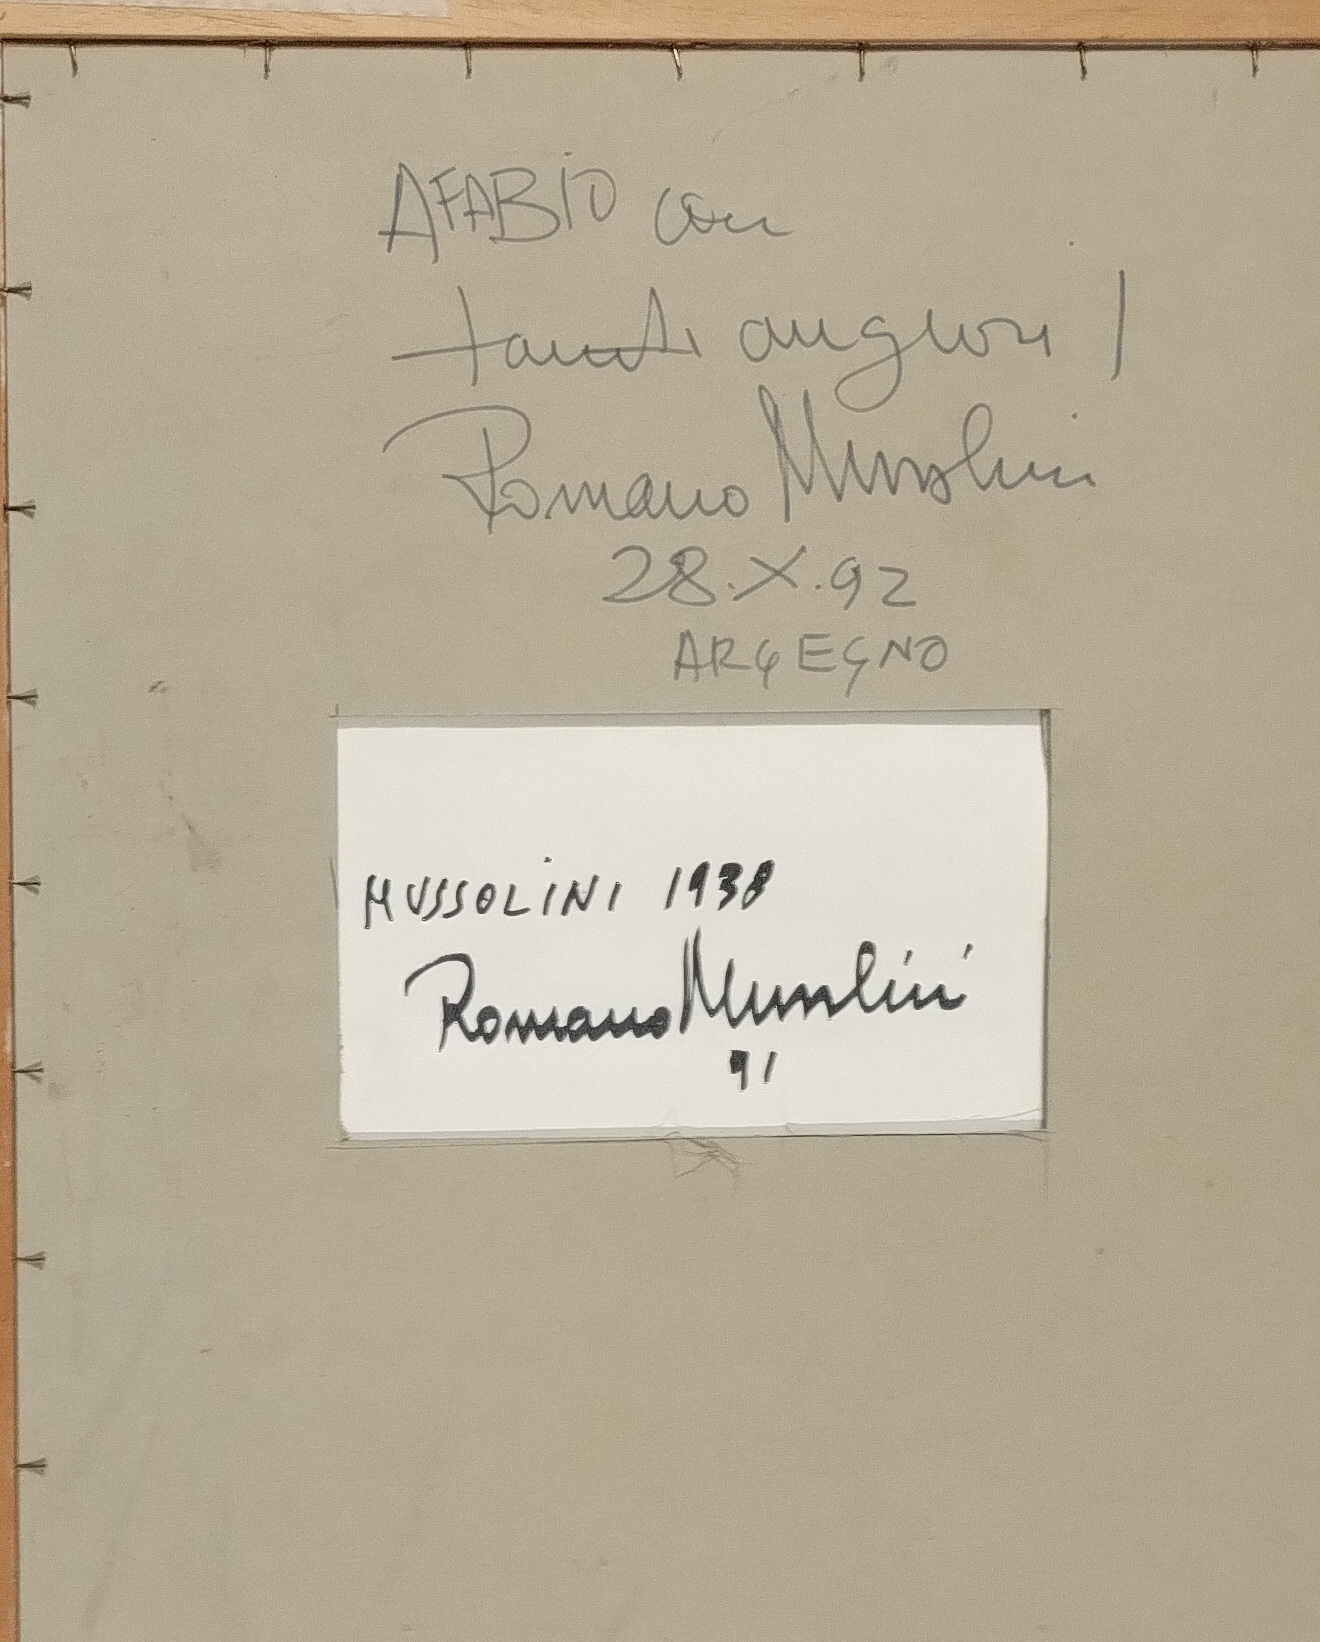 A FABIO con
tanti auguri !
Romano Mussolini
28.X.92
ARGEGNO
MUSSOLINI 1938
Romano Mussolini
91